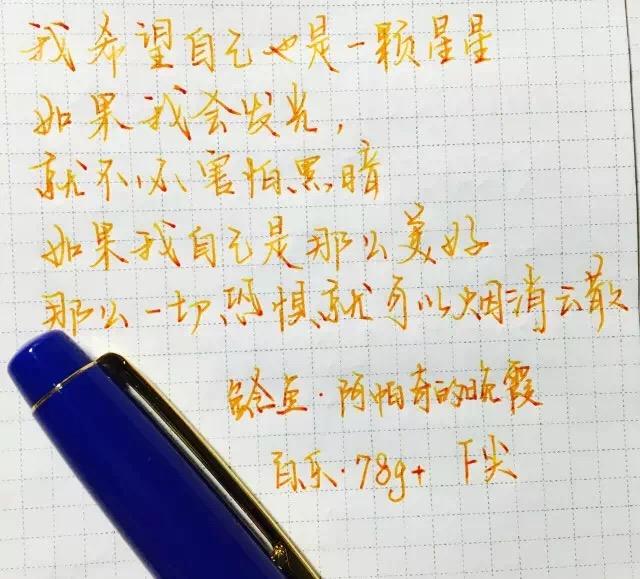 我希望自己也是一颗星星
如果我会发光，
就不必害怕黑暗
如果我自己是那么美好
那么一切恐惧就可以烟消云散
鲶鱼·阿帕奇的晚霞
百乐·78g+ F尖